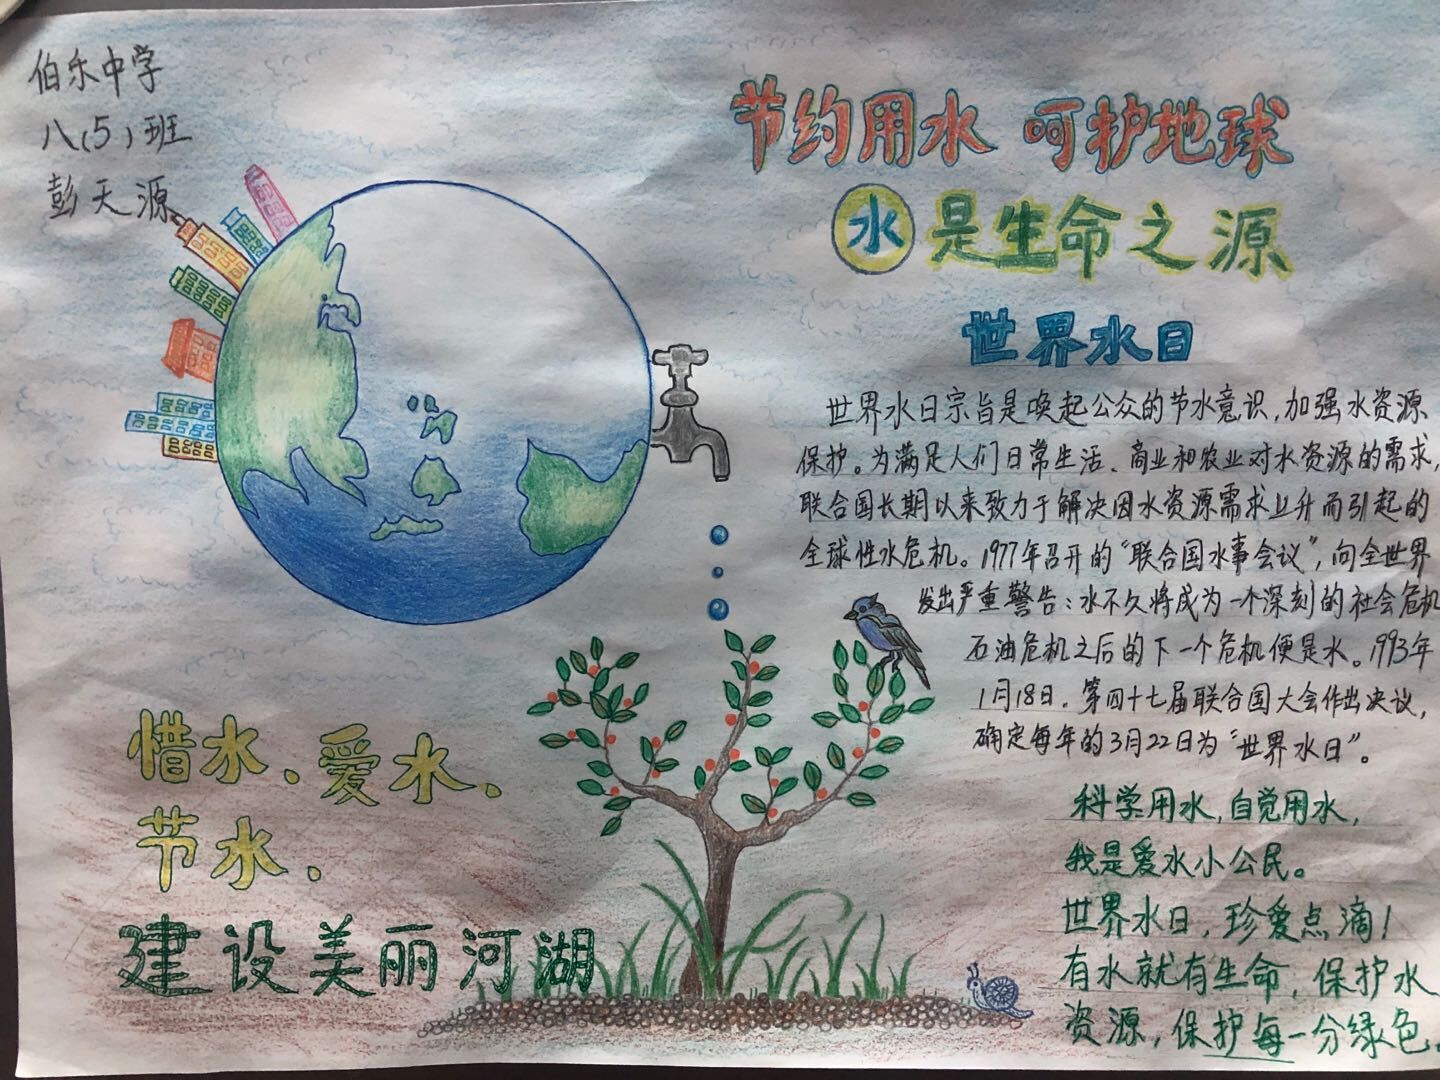 伯乐中学
八(5)班
彭天源
节约用水 呵护地球
水是生命之源
世界水日
世界水日宗旨是唤起公众的节水意识,加强水资源
保护。为满足人们日常生活、商业和农业对水资源的需求,
联合国长期以来致力于解决因水资源需求上升而引起的
全球性水危机。1977年召开的“联合国水事会议”,向全世界
发出严重警告:水不久将成为一个深刻的社会危机
石油危机之后的下一个危机便是水。1993年
1月18日.第四十七届联合国大会作出决议,
确定每年的3月22日为“世界水日”。
科学用水,自觉用水,
我是爱水小公民。
世界水日,珍爱点滴!
有水就有生命,保护水
资源,保护每一分绿色.
惜水、爱水、
节水、
建设美丽河湖